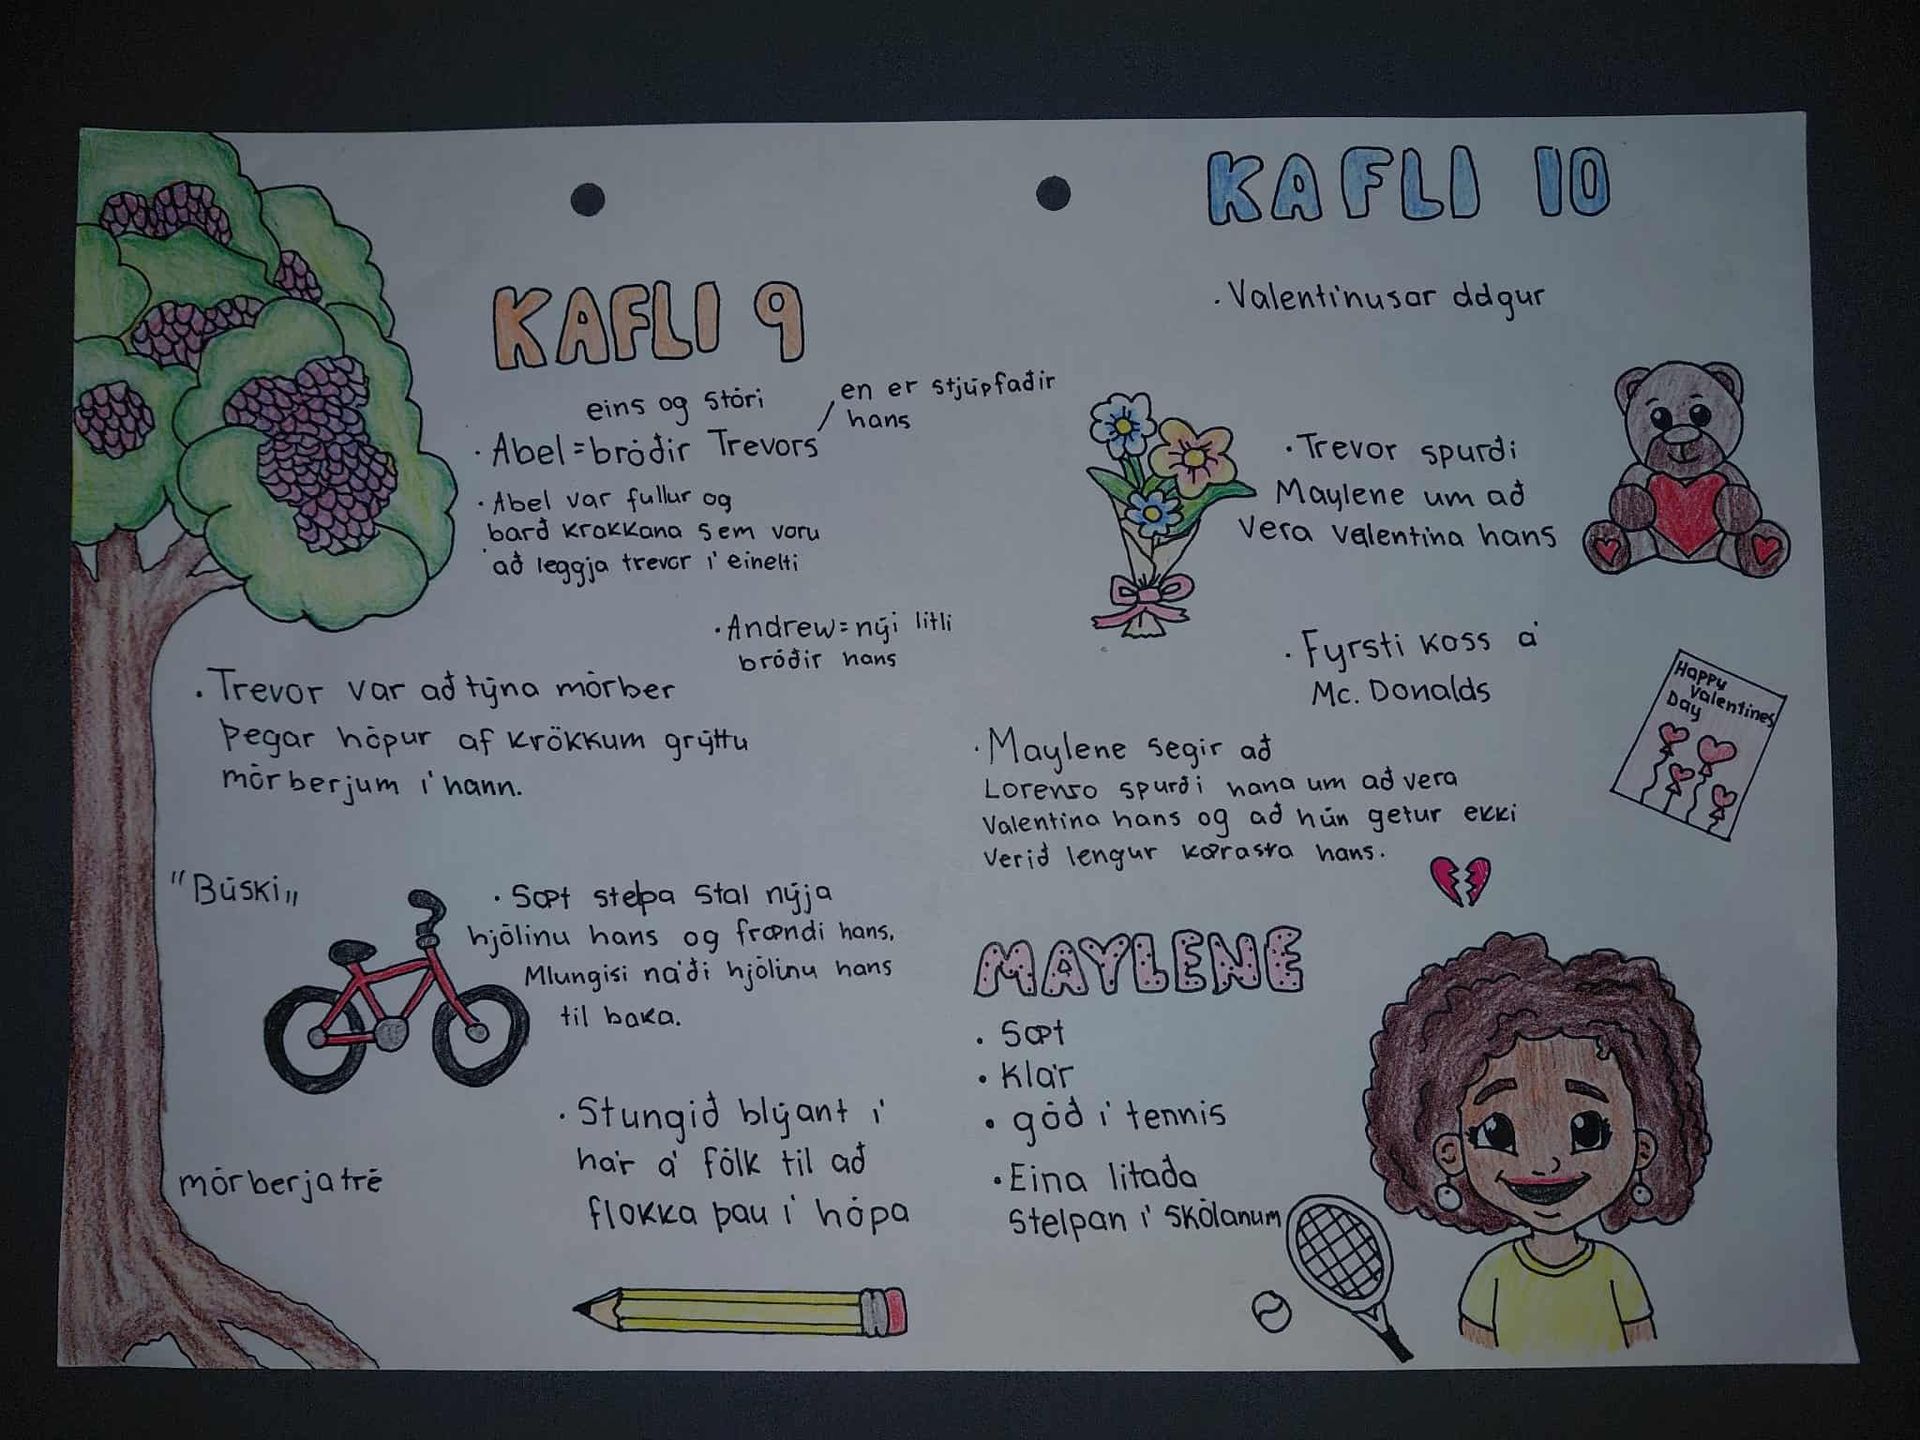 KAFLI 9
eins og stóri
en er stjúpfaðir
hans
· Abel = bróðir Trevors
· Abel var fullur og
barð krakkana sem voru
að leggja trevor í einelti
· Andrew = nýi litli
bróðir hans
· Trevor var að týna mórber
þegar hópur af krökkum grýttu
mórberjum í hann.
"Búski„
· Sæt stelpa stal nýja
hjólinu hans og frændi hans,
Mlungisi náði hjólinu hans
til baka.
· Stungið blýant í
hár á fólk til að
flokka þau í hópa
mórberjatré
KAFLI 10
· Valentínusar ddgur
· Trevor spurði
Maylene um að
vera valentína hans
· Fyrsti koss á
Mc. Donalds
Happy
Valentines
Day
· Maylene segir að
Lorenzo spurði hana um að vera
Valentína hans og að hún getur ekki
verið lengur kærasta hans.
MAYLENE
· Sæt
· Klár
· góð í tennis
· Eina litaða
stelpan í skólanum